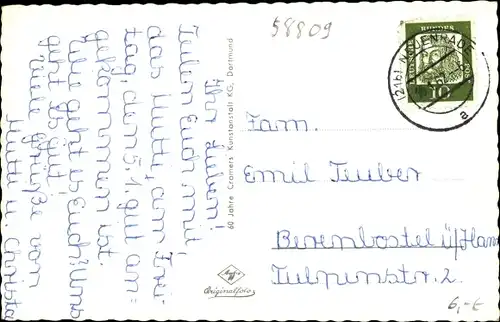 58809
Ihr Lieben!
Teilen Euch mit,
das Mutti, am Frei-
tag, dem 5.1. gut an=
gekommen ist.
Wie geht es Euch? Uns
geht es gut.
Viele Grüße von
Mutti u. Christa
60 Jahre Cramers Kunstanstalt KG, Dortmund
Agfa
Originalfoto
(21b)
10
a
Fam.
Emil Tauber
Berenbostel ü/Han
Tulpenstr. 2.
6,-€